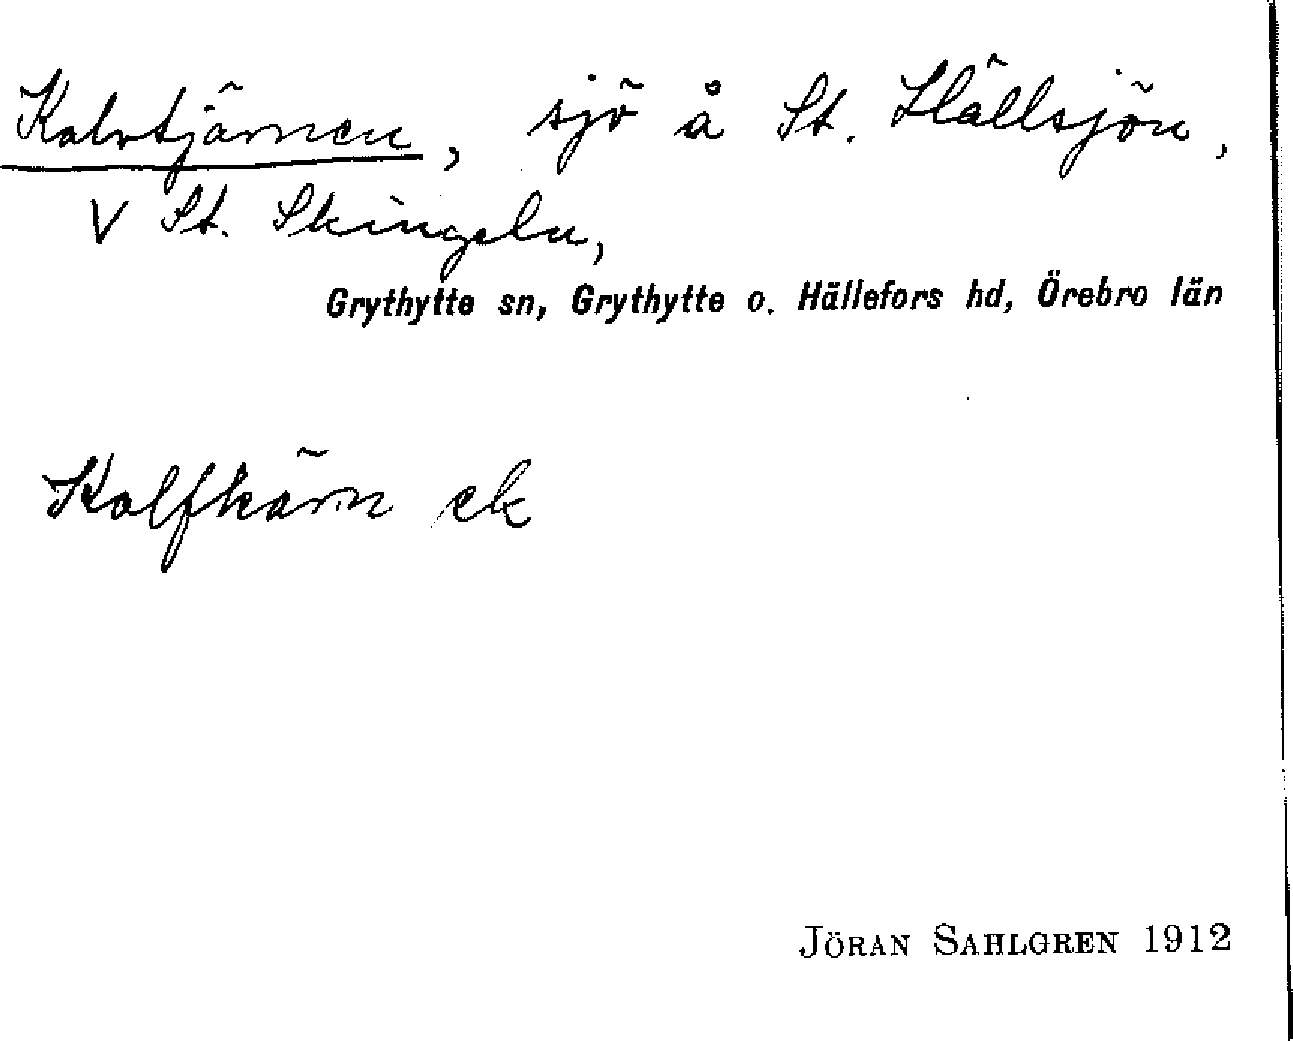 Kalvtjärnen, sjö å St. Hällsjön,
V St. Skingeln,
Grythytte sn, Grythytte o. Hällefors hd, Örebro län
Kalfkärn ek
JÖRAN SAHLGREN 1912